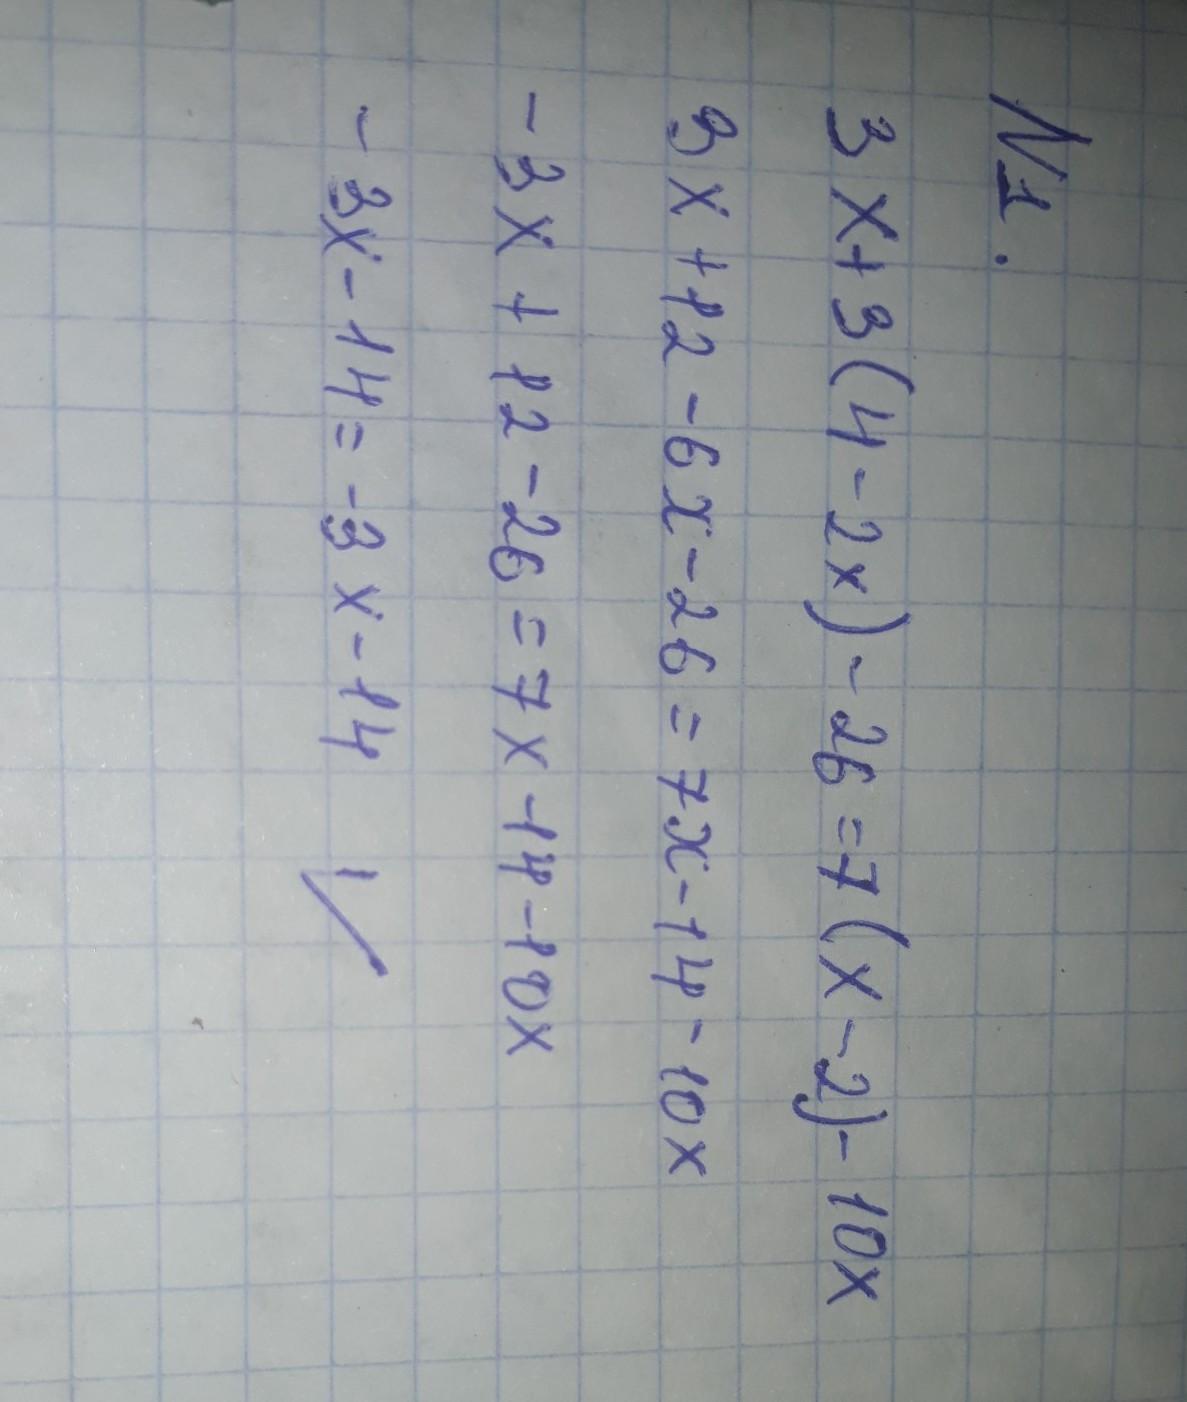 N1.
3x+3(4-2x)-26=7(x-2)-10x
3x+12-6x-26=7x-14-10x
-3x+12-26=7x-14-10x
-3x-14=-3x-14